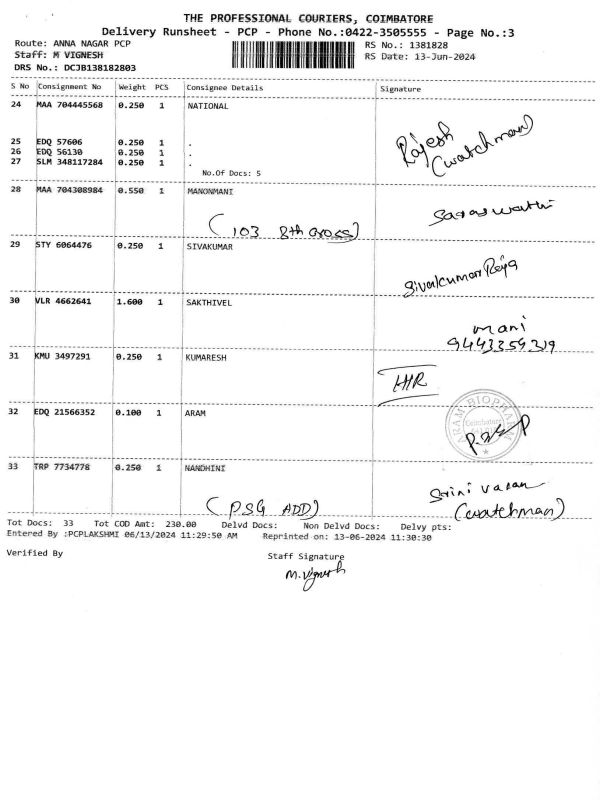 THE PROFESSIONAL COURIERS, COIMBATORE
Delivery Runsheet - PCP - Phone No.:0422-3505555 - Page No.:3
Route: ANNA NAGAR PCP RS No.: 1381828
Staff: M VIGNESH RS Date: 13-Jun-2024
DRS No.: DCJB138182803
S No Consignment No Weight PCS Consignee Details Signature
24 MAA 704445568 0.250 1 NATIONAL
Rajesh
(watchman)
25 EDQ 57606 0.250 1 .
26 EDQ 56130 0.250 1 .
27 SLM 348117284 0.250 1 .
No.Of Docs: 5
28 MAA 704308984 0.550 1 MANONMANI
Saraswathi
(103 8th cross)
29 STY 6064476 0.250 1 SIVAKUMAR
Sivakumar
30 VLR 4662641 1.600 1 SAKTHIVEL
mani
9443359319
31 KMU 3497291 0.250 1 KUMARESH
32 EDQ 21566352 0.100 1 ARAM
ARAM BIOPHARM
Coimbatore
33 TRP 7734778 0.250 1 NANDHINI
Srinivasan
(PSG ADD) (watchman)
Tot Docs: 33 Tot COD Amt: 230.00 Delvd Docs: Non Delvd Docs: Delvy pts:
Entered By :PCPLAKSHMI 06/13/2024 11:29:50 AM Reprinted on: 13-06-2024 11:30:30
Verified By Staff Signature
M.Vignesh